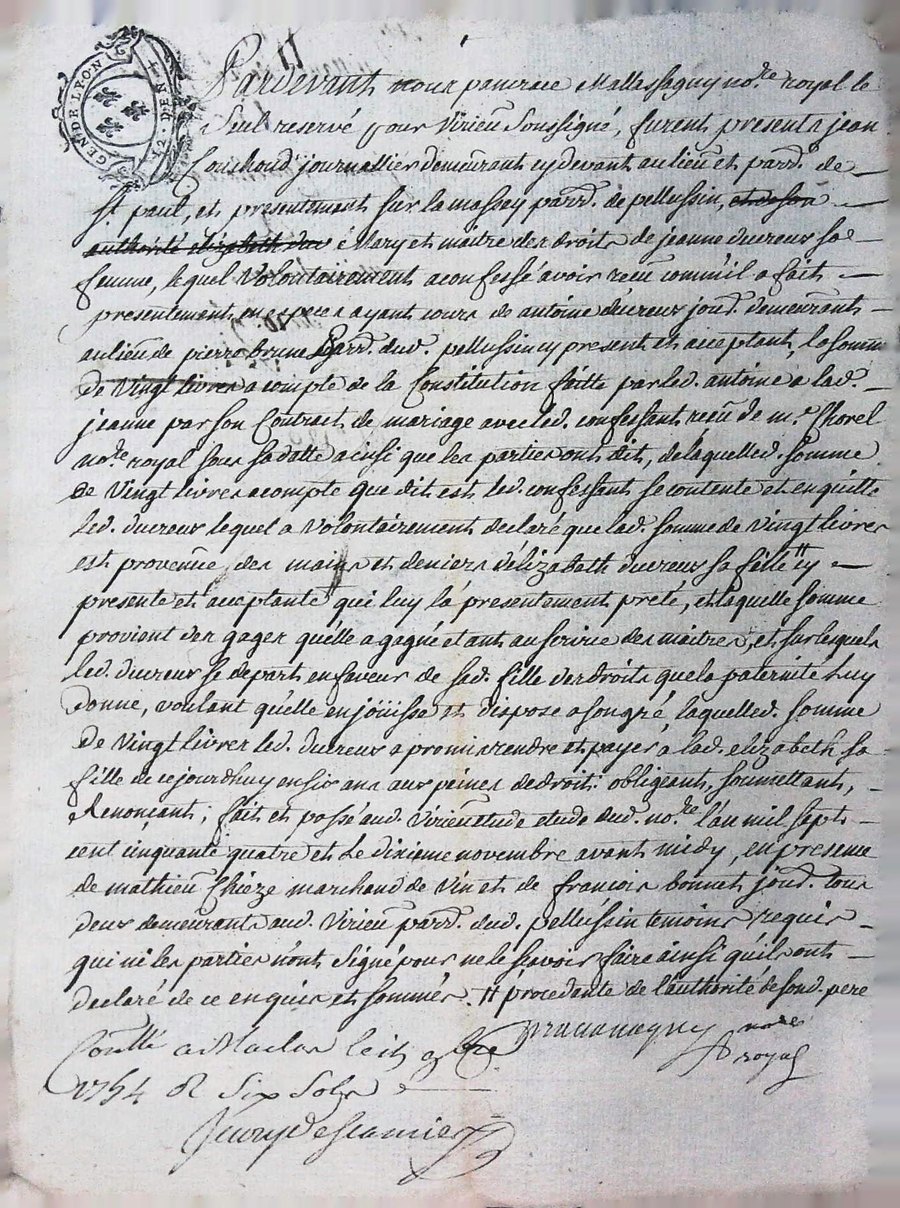 GEN DE LYON
12 DEN
Pardevant nous pancrace Mallassagny no.re royal le
Seul reservé pour Virieu Soussigné, furent presents jean
Couchoud journallier demeurant cy devant au lieu et parr. de
St paul, et presentement sur la massey parr. de pellussin, et de son
authorité elizabeth duc Mary et maitre des droits de jeanne ducreux sa
femme, lequel Volontairement a confessé avoir recu comm'il a fait
presentement en especes ayant cours de antoine ducreux jour. demeurant
au lieu de pierre brune parr. dud. pellussin cy present et acceptant, la somme
de Vingt livres a compte de la Constitution faitte par led. antoine a lad.
jeanne par son Contract de mariage avec led. confessant recu de m.e Chorel
no.re royal sous sa datte ainsi que les parties ont dit, de laquelle d. somme
de Vingt livres a compte que dit est led. confessant se contente et en quitte
led. ducreux lequel a Volontairement declaré que lad. somme de Vingt livres
est provenue, des mains et deniers d'elizabeth ducreux sa fille # cy
presente et acceptante qui luy la presentement preté, et laquelle somme
provient des gages qu'elle a gagné etant au service des maitres, et sur lesquels
led. ducreux se depart en faveur de sad. fille des droits que la paternité luy
donne, voulant qu'elle en joüisse et dispose a son gré, laquelle d. somme
de Vingt livres led. ducreux a promis rendre et payer à lad. elizabeth sa
fille de ce jourdhuy en six ans aux peines de droit: obligeant, soumettant,
Renonçant; fait et passé aud. Virieu etude dud. no.re l'an mil sept
cent cinquante quatre et le dixieme novembre avant midy, en presence
de mathieu Chieze marchand de Vin et de francois bonnet jour. tous
deux demeurants aud. Virieu parr. dud. pellussin temoins requis
qui ni les parties n'ont signé pour ne le scavoir faire ainsi qu'ils ont
declaré de ce enquis et sommés. # procedante de l'authorité de sond. pere
no.re
royal
Conllé a Maclas le 9bre
1754 R Six Sols